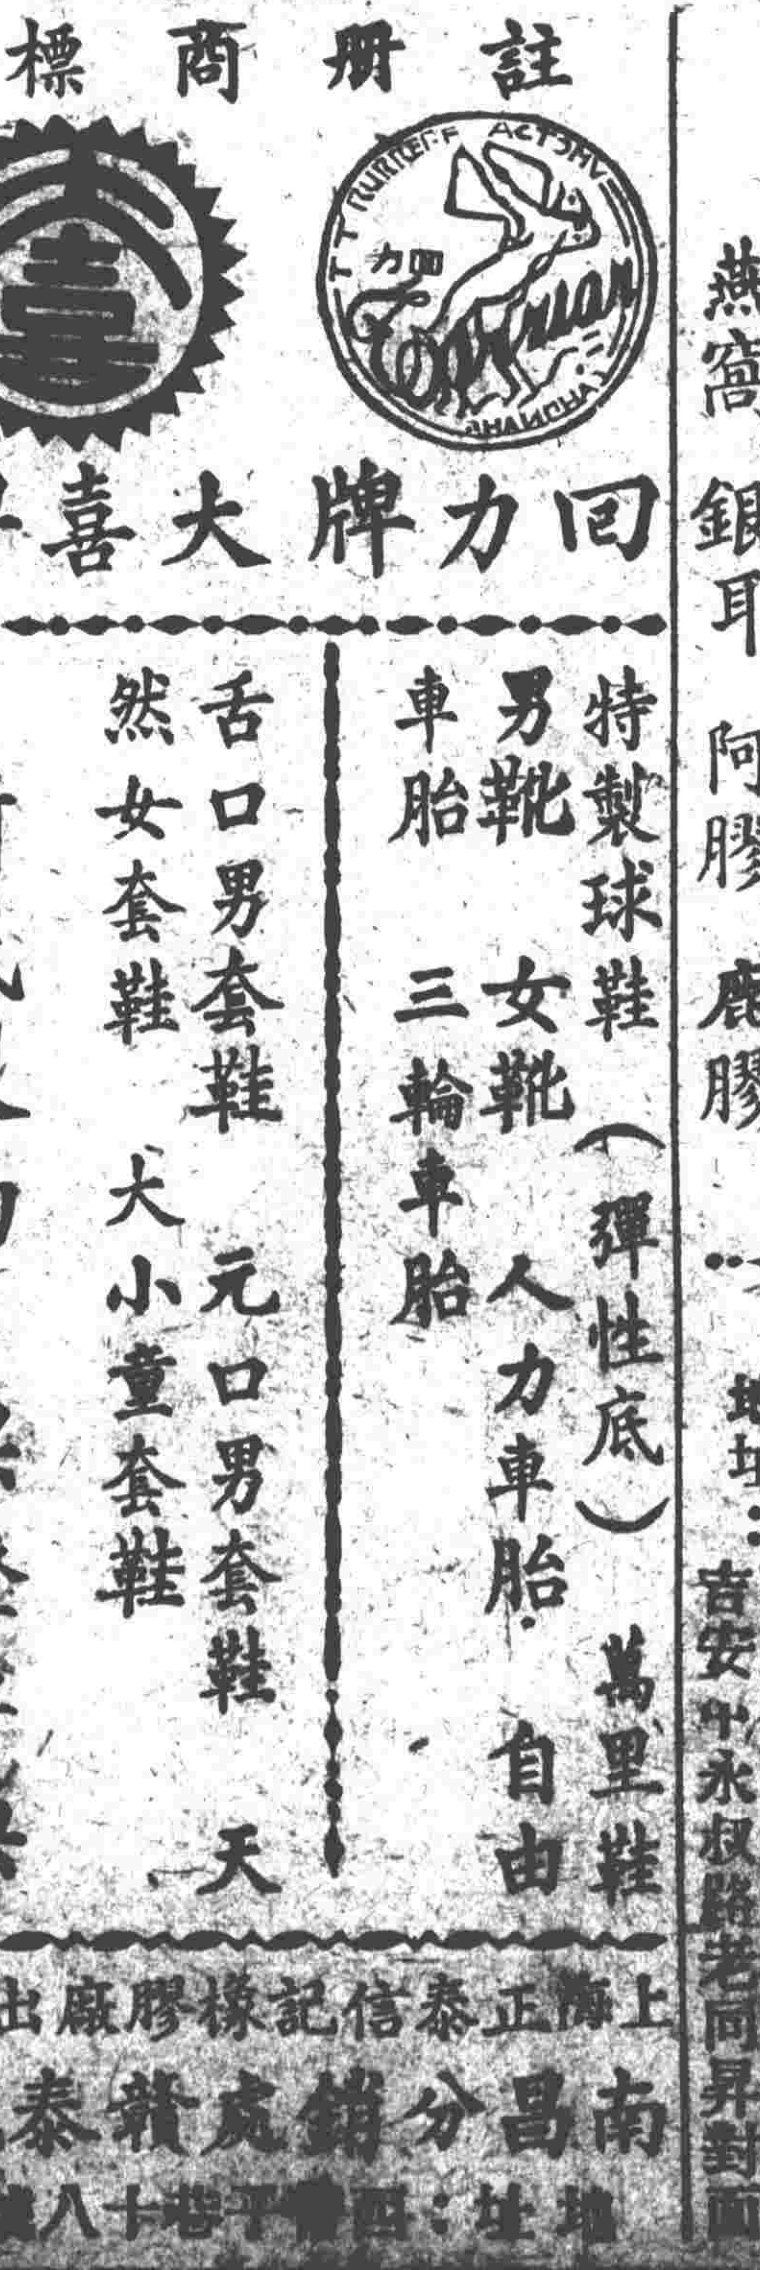 燕窩 銀耳 阿膠 鹿膠
地址：吉安中永叔路老同昇對面
註册商標
回力
Warrior
回力牌大喜
特製球鞋（彈性底） 萬里鞋
男靴 女靴 人力車胎 自由
車胎 三輪車胎
舌口男套鞋 元口男套鞋 天
然女套鞋 大小童套鞋
上海正泰信記橡膠廠出
南昌分銷處贛泰
地址：四 平巷十八